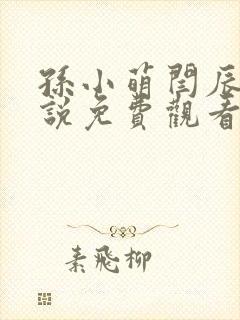 孫小萌閆辰
說免費觀看
素飛柳